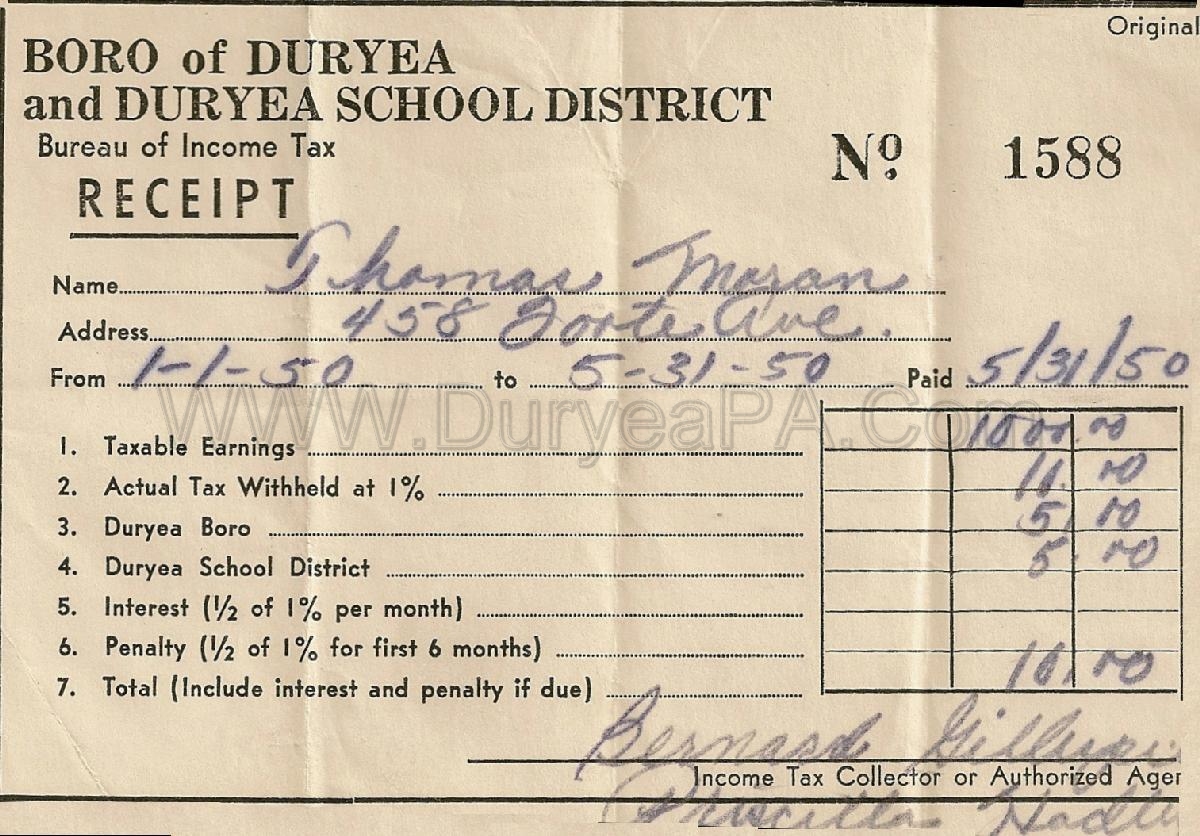 Original
BORO of DURYEA
and DURYEA SCHOOL DISTRICT
Bureau of Income Tax
RECEIPT
No. 1588
Name Thomas Moran
Address 458 Foote Ave.
From 1-1-50 to 5-31-50 Paid 5/31/50
WWW.DuryeaPA.Com
1. Taxable Earnings 1000.00
2. Actual Tax Withheld at 1% 10.00
3. Duryea Boro 5.00
4. Duryea School District 5.00
5. Interest (½ of 1% per month)
6. Penalty (½ of 1% for first 6 months)
7. Total (Include interest and penalty if due) 10.00
Bernard
Income Tax Collector or Authorized Agen
Priscilla